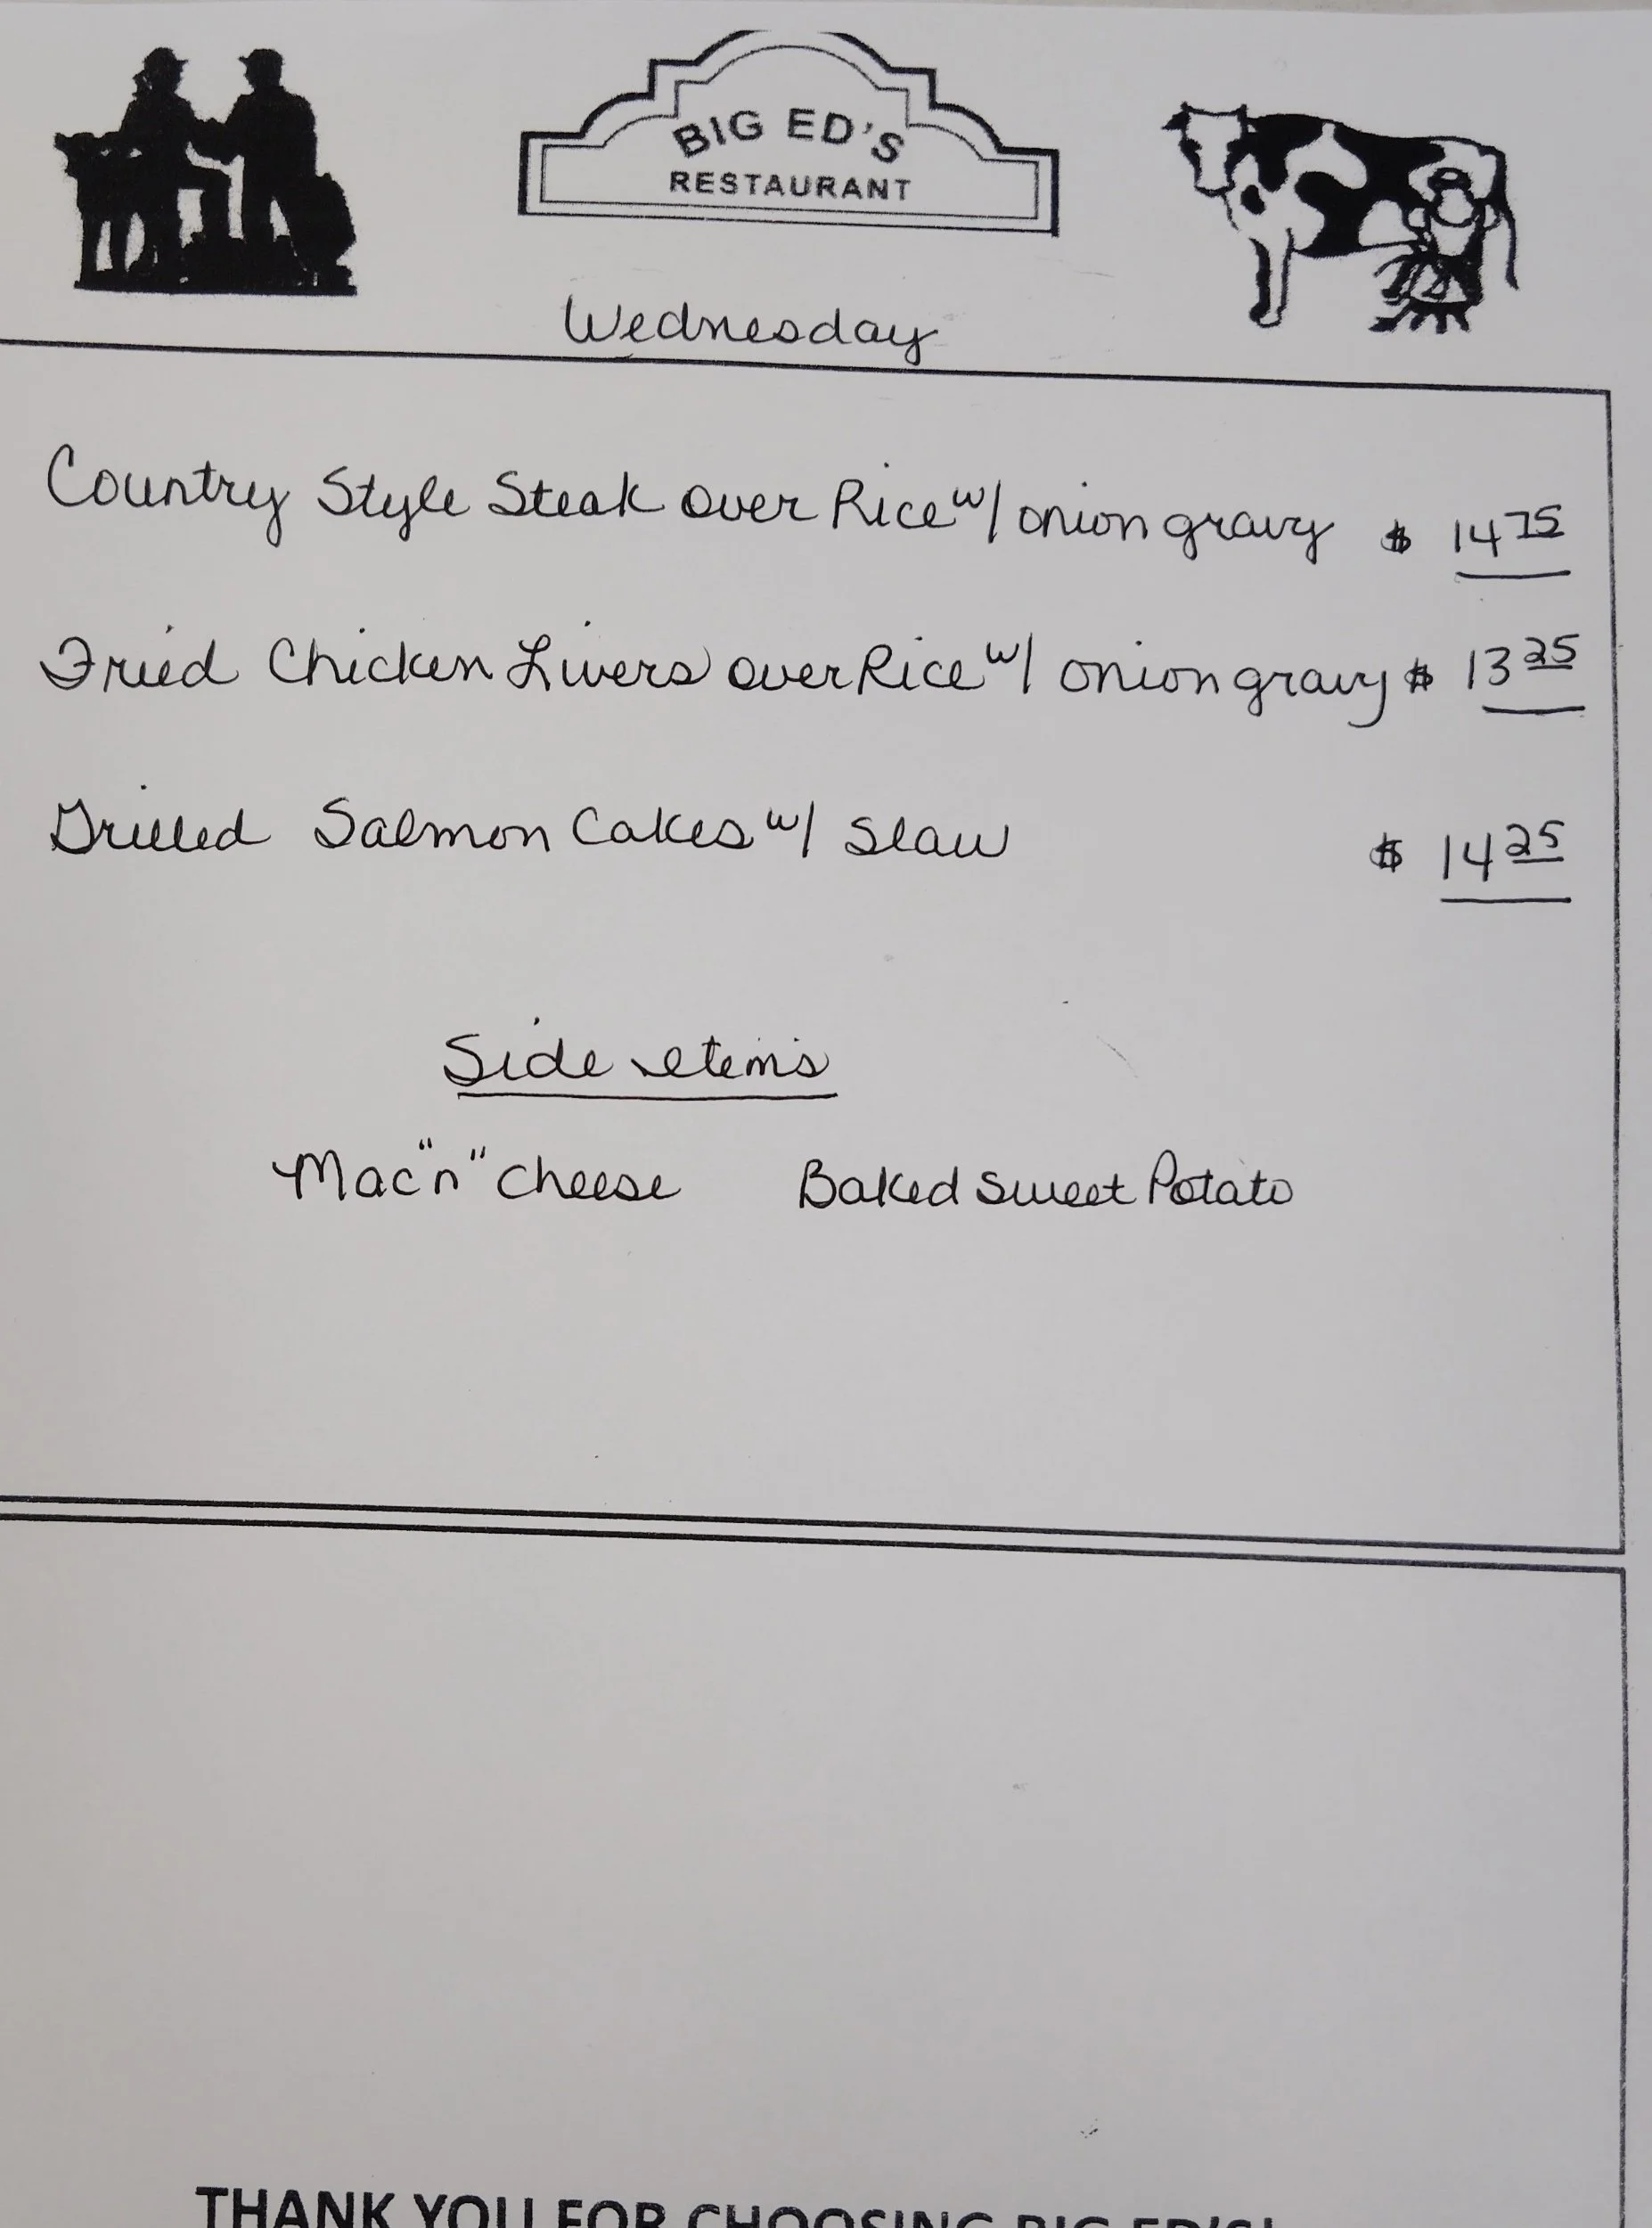 BIG ED'S
RESTAURANT
Wednesday
Country Style Steak over Rice w/ onion gravy $ 14 75
Fried Chicken Livers over Rice w/ onion gravy $ 13 25
Grilled Salmon Cakes w/ Slaw $ 14 25
Side Items
Mac "n" Cheese Baked Sweet Potato
THANK YOU FOR CHOOSING BIG ED'S!